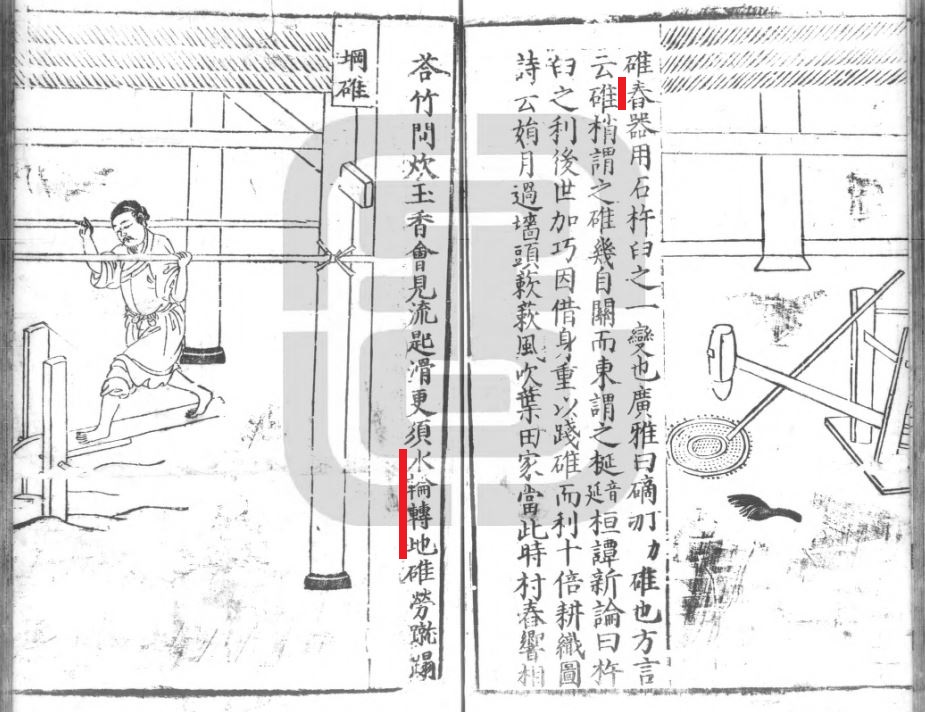 碓舂器用石杵臼之一變也廣雅曰力碓也方言
云碓梢謂之碓幾自關而東謂之梴音延桓譚新論曰杵
臼之利後世加巧因借身重以踐碓而利十倍耕織圖
詩云娟月過墻頭簌簌風吹葉田家當此時村舂響相
荅竹問炊玉香會見流匙滑更須水輪轉地碓勞蹴蹋
堈碓